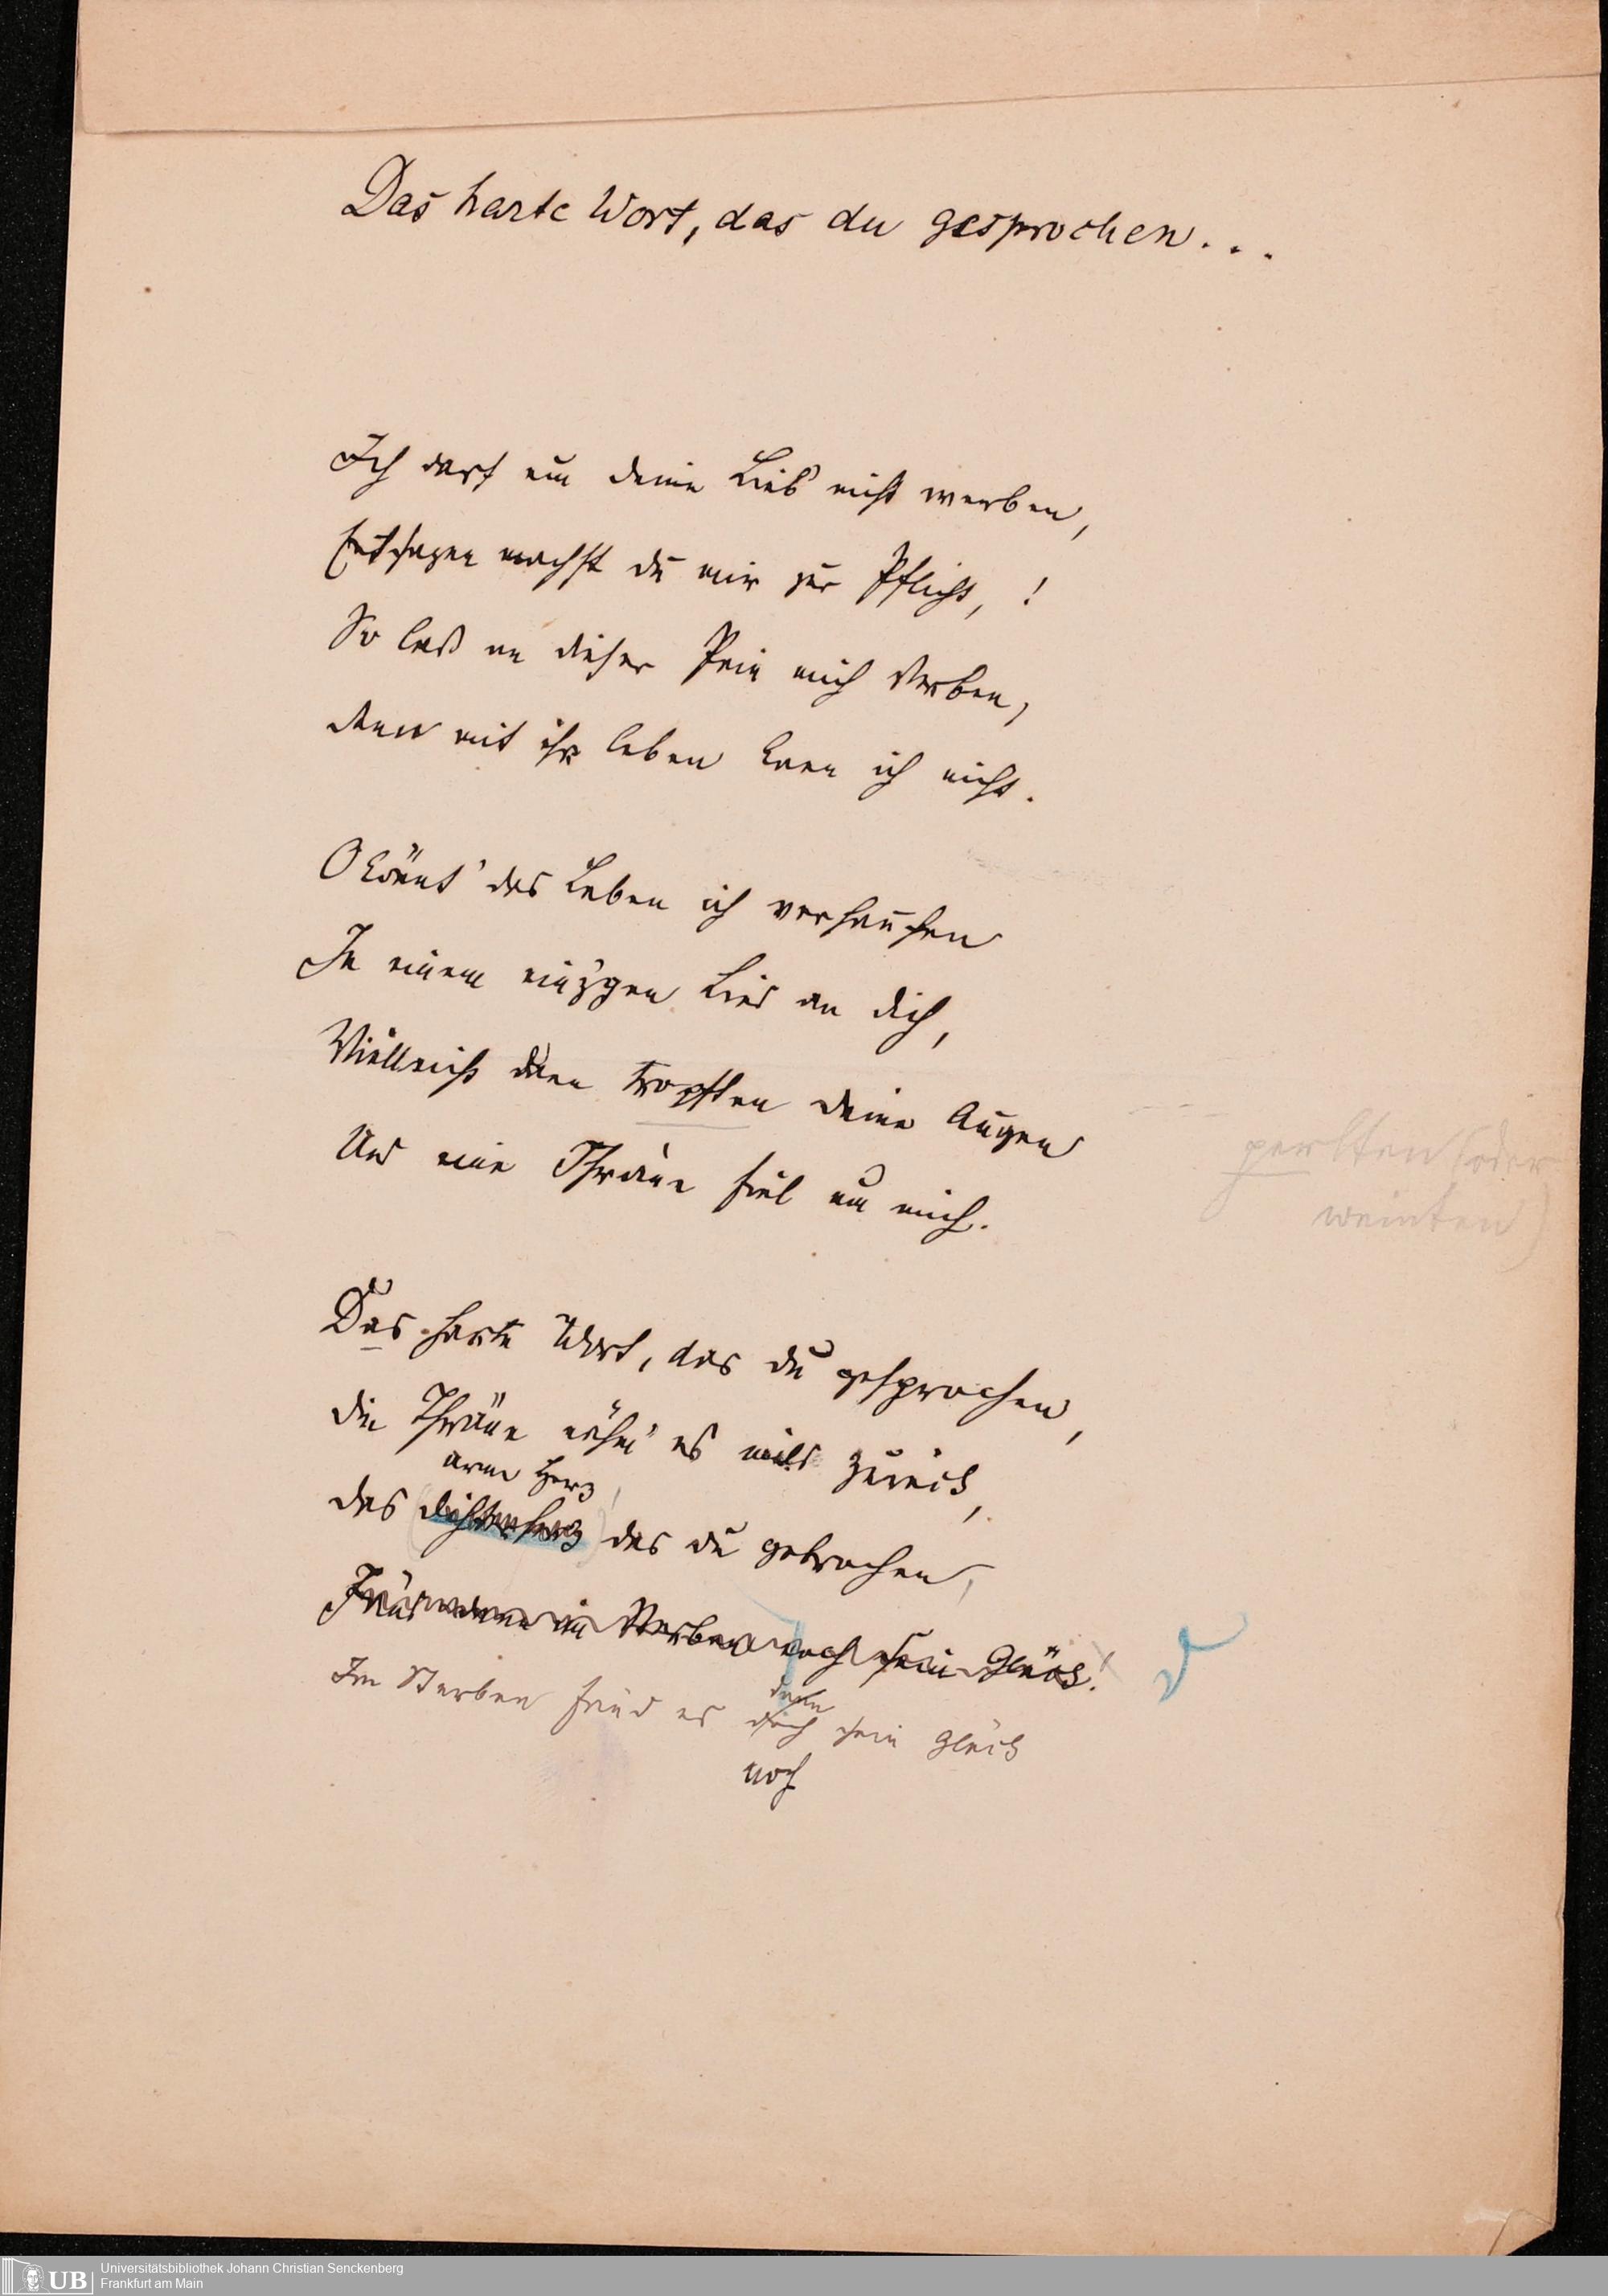 Das harte Wort, das du gesprochen...
Ich darf um deine Lieb' nicht werben,
Entsagen machst du mir zur Pflicht, !
So laß an dieser Pein mich sterben,
denn mit ihr leben kann ich nicht.
O könnt' das Leben ich verhauchen
In einem einz'gen Lied an dich,
Vielleicht dann tropften deine Augen
perlten (oder
weinten)
Und eine Thräne fiel um mich.
Das harte Wort, das du gesprochen,
die Thräne nähm' es mild zurück,
arme Herz,
das Dichterherz das du gebrochen,
Fänd im Sterben noch sein Glück!
dann
Im Sterben fänd es doch sein Glück
noch
UB
Universitätsbibliothek Johann Christian Senckenberg
Frankfurt am Main